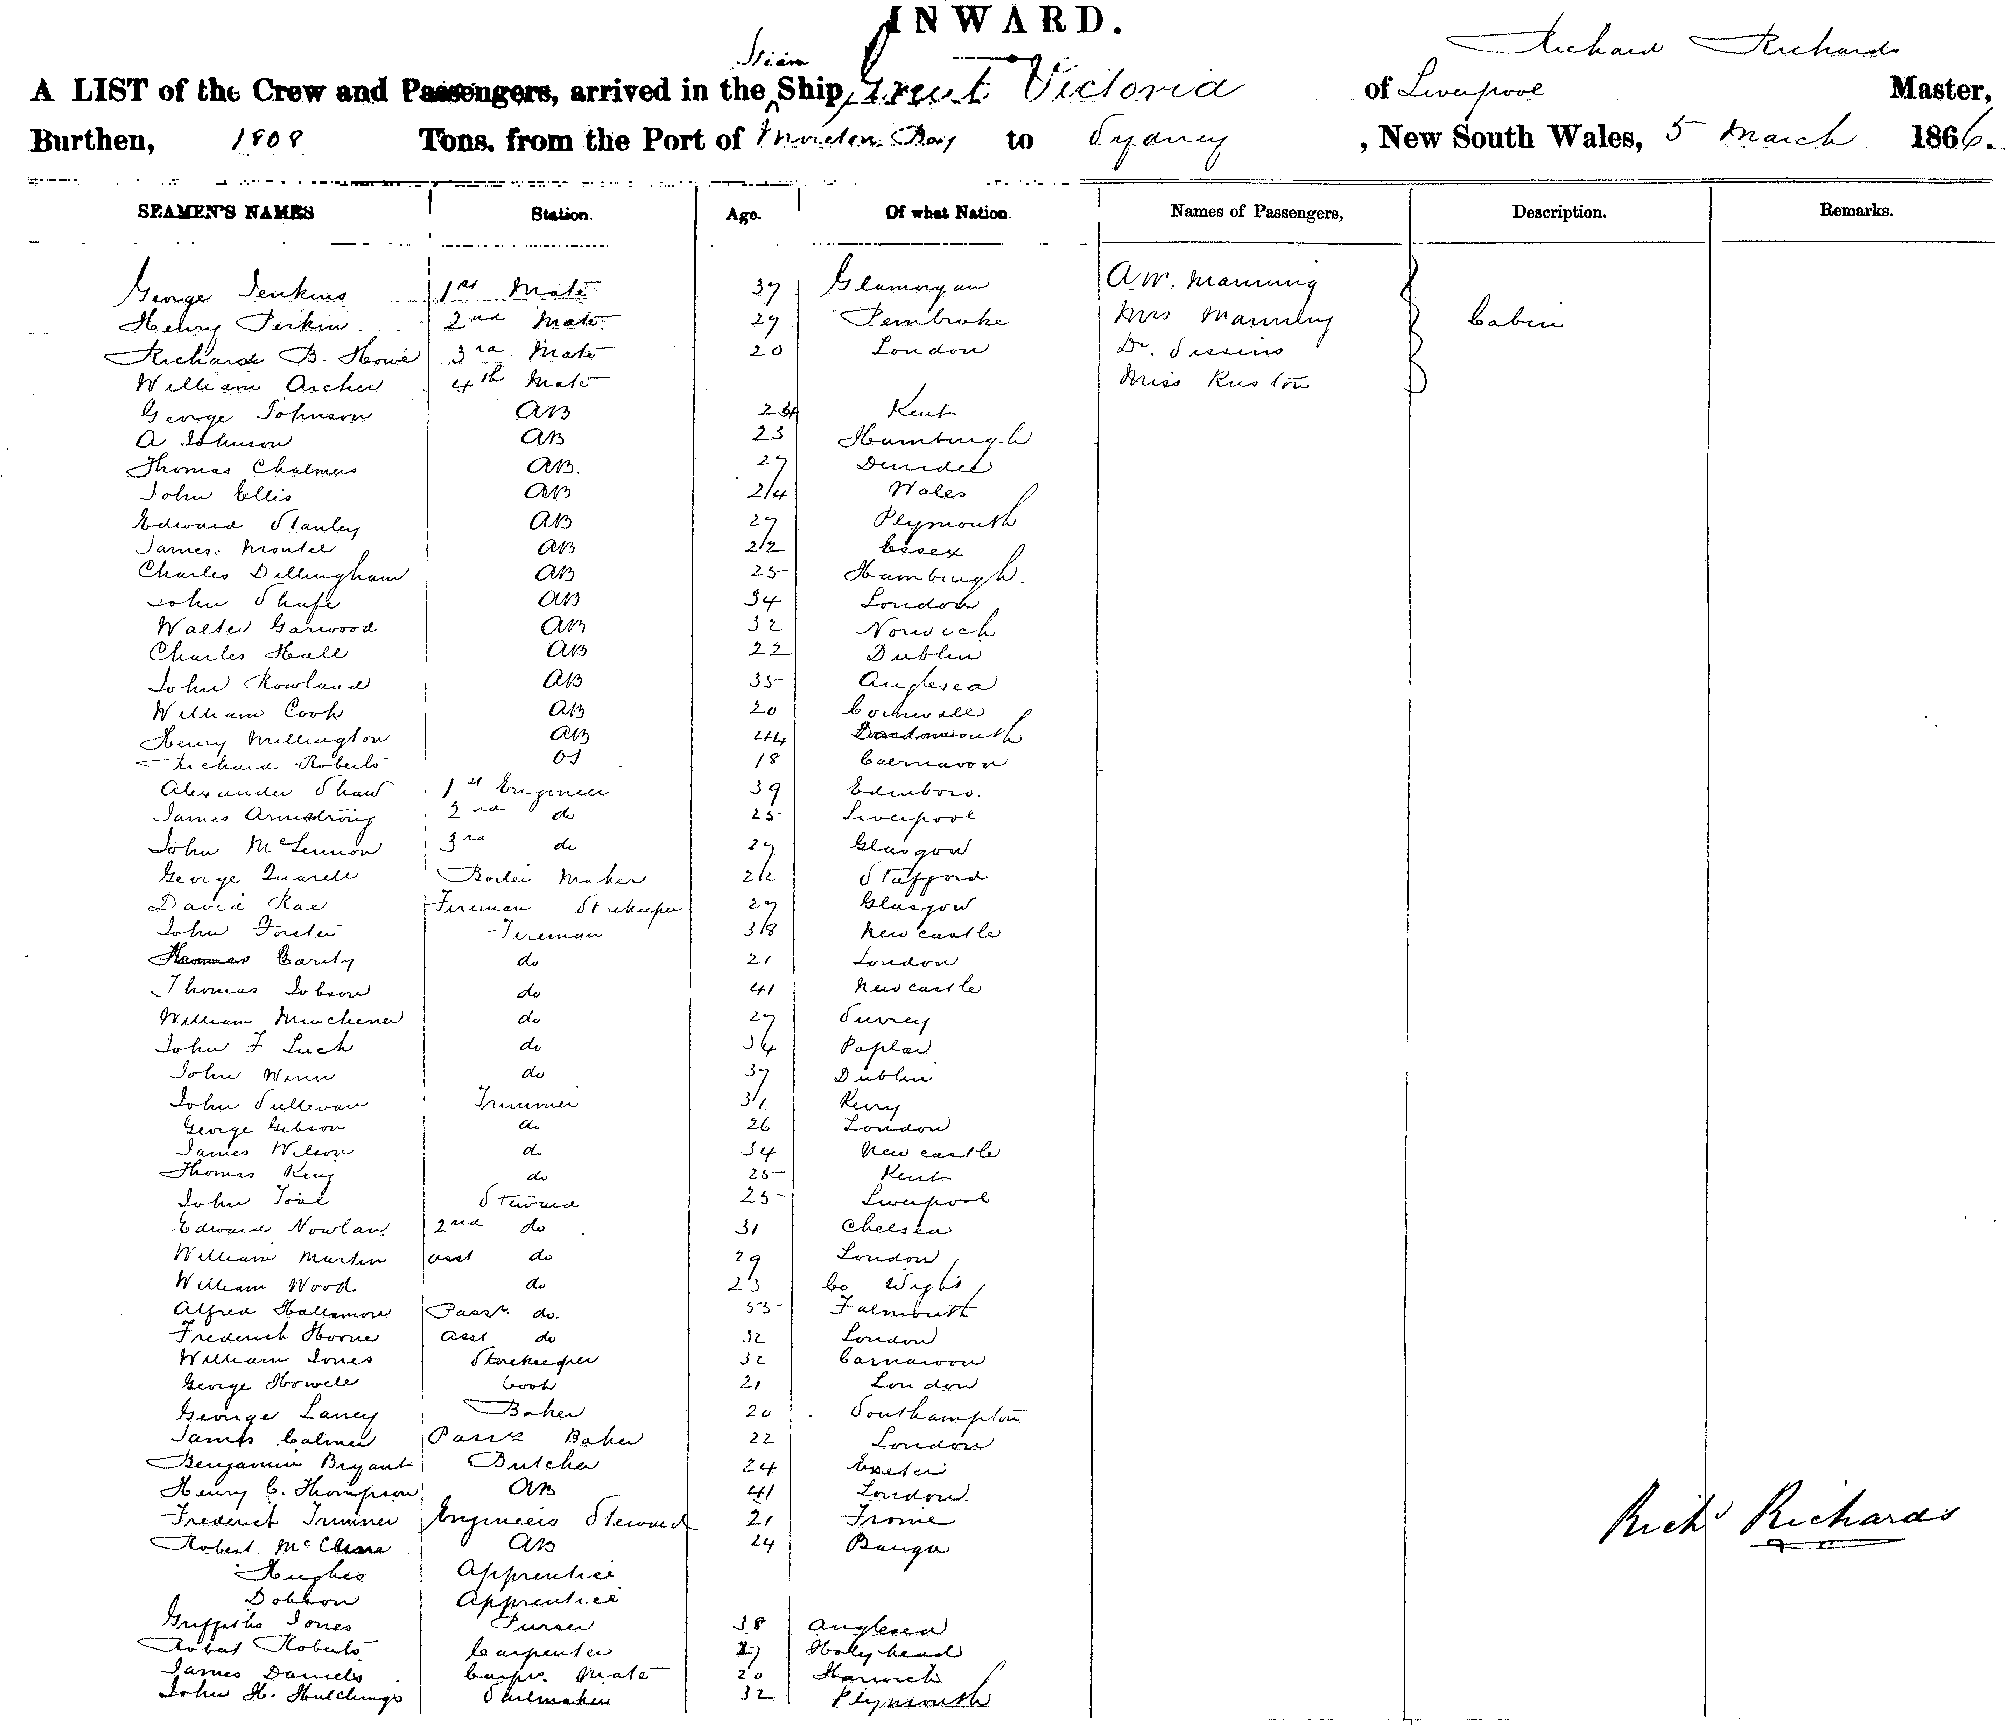 INWARD.
Richard Richards
A LIST of the Crew and Passengers, arrived in the Steam Ship, Great Victoria of Liverpool Master,
Burthen, 1808 Tons. from the Port of Moreton Bay to Sydney, New South Wales, 5 March 1866.
SEAMEN'S NAMES Station. Age. Of what Nation. Names of Passengers, Description. Remarks.
George Jenkins 1st Mate 37 Glamorgan A W. Manning
Henry Perkin 2nd Mate 29 Pembroke Mrs Manning Cabin
Richard B. Howe 3rd Mate 20 London Dr.
William Archer 4th Mate Miss Ruston
George Johnson AB Kent
A Johnson AB 23 Hamburgh
Thomas Chalmers AB. 27 Dundee
John Ellis AB 24 Wales
Edward Stanley AB 27 Plymouth
James AB 22 Essex
Charles Dillingham AB 25 Hamburgh.
John AB 34 London
Walter Garwood AB 32 Norwich
Charles Hall AB 22 Dublin
John Rowland AB 35 Anglesea
William Cook AB 20 Cornwall
Henry Millington AB 44
Richard Roberts OS 18 Caernavon
Alexander Shaw 1st Engineer 39 Edinboro.
James Armstrong 2nd do 25 Liverpool
John McLennon 3rd do 27 Glasgow
George Boiler Maker Stafford
David Rae Fireman Storekeeper 27 Glasgow
John Foster Fireman 38 Newcastle
Garity do 21 London
Thomas Jobson do 41 Newcastle
William do 27 Surrey
John F Luch do 34 Poplar
John Winn do 37 Dublin
John Sullivan Trimmer 31 Kerry
George Gibson do 26 London
James Wilson do 34 Newcastle
Thomas King do 25 Kent
John Steward 25 Liverpool
Edward Nowlan 2nd do 31 Chelsea
William Martin asst do 29 London
William Wood do 23
Alfred Hallamore Passr. do. 33 Falmouth
Frederick Horne asst do 32 London
William Jones Storekeeper 32 Carnavon
George Howell Cook 21 London
George Laney Baker 20 Southampton
James Calmer Passr Baker 22 London
Benjamin Bryant Butcher 24 Exeter
Henry C. Thompson AB 41 London.
Frederick Trimmer Engineers Steward 21 Frome
Robert McClure AB 24
Rich Richards
Hughes Apprentice
Dobson Apprentice
Griffiths Jones Purser 38 Anglesea
Robert Roberts Carpenter Holyhead
James Daniels Carpr. Mate 20 Harwich
John H. Hutchings Sailmaker 32 Plymouth